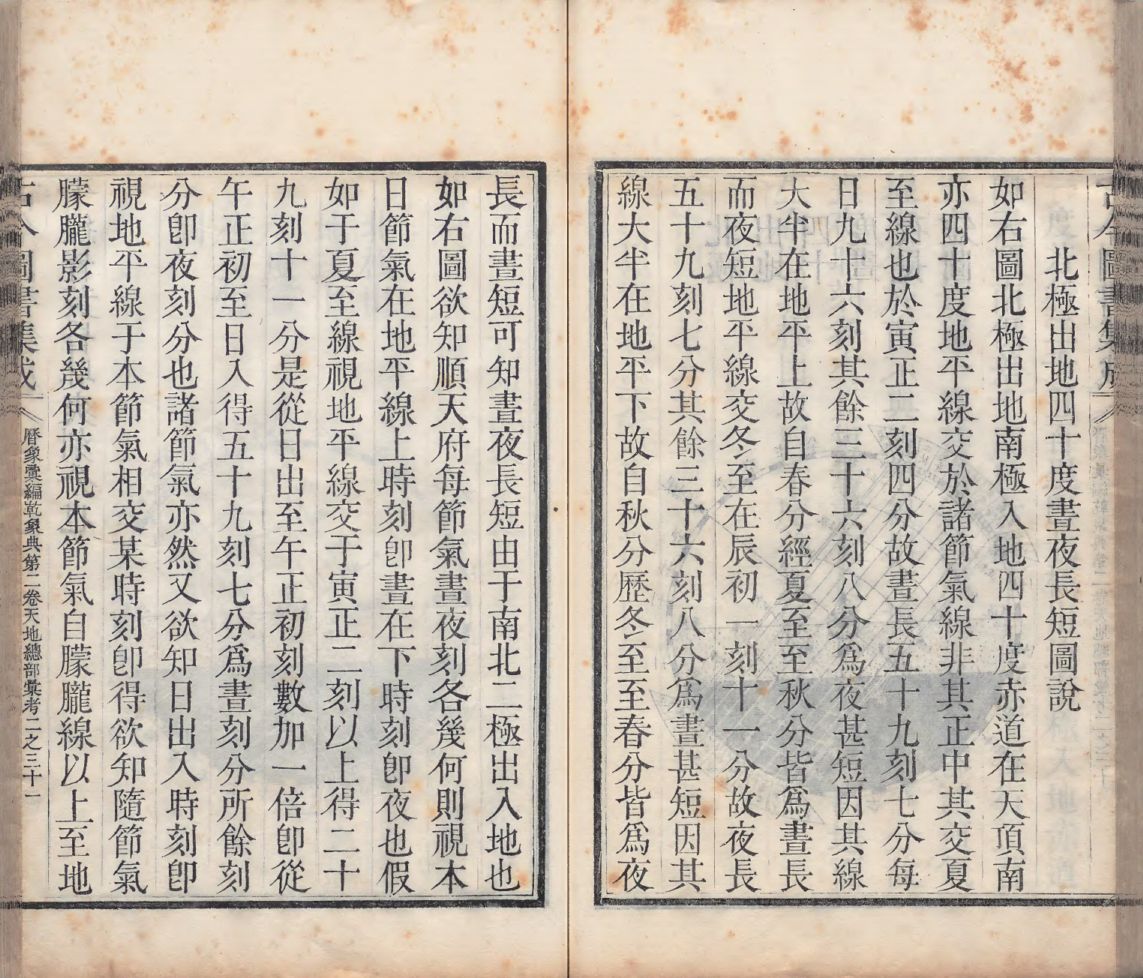 古今圖書集成
北極出地四十度晝夜長短圖說
如右圖北極出地南極入地四十度赤道在天頂南
亦四十度地平線交於諸節氣線非其正中其交夏
至線也於寅正二刻四分故晝長五十九刻七分每
日九十六刻其餘三十六刻八分爲夜甚短因其線
大半在地平上故自春分經夏至至秋分皆爲晝長
而夜短地平線交冬至在辰初一刻十一分故夜長
五十九刻七分其餘三十六刻八分爲晝甚短因其
線大半在地平下故自秋分歷冬至至春分皆爲夜
長而晝短可知晝夜長短由于南北二極出入地也
如右圖欲知順天府每節氣晝夜刻各幾何則視本
日節氣在地平線上時刻卽晝在下時刻卽夜也假
如于夏至線視地平線交于寅正二刻以上得二十
九刻十一分是從日出至午正初刻數加一倍卽從
午正初至日入得五十九刻七分爲晝刻分所餘刻
分卽夜刻分也諸節氣亦然又欲知日出入時刻卽
視地平線于本節氣相交某時刻卽得欲知隨節氣
朦朧影刻各幾何亦視本節氣自朦朧線以上至地
古今圖書集成
曆象彙編乾象典第二卷天地總部彙考二之三十一